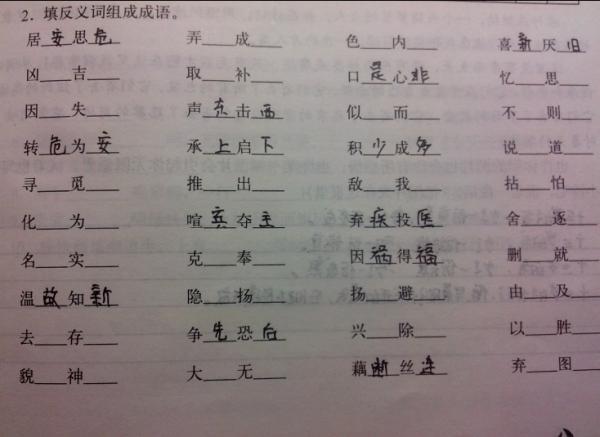 2. 填反义词组成成语。
居安思危 弄__成__ 色__内__ 喜新厌旧
凶__吉__ 取__补__ 口是心非 忆__思__
因__失__ 声东击西 似__而__ 不__则__
转危为安 承上启下 积少成多 说__道__
寻__觅__ 推__出__ 敌__我__ 拈__怕__
化__为__ 喧宾夺主 弃疾投医 舍__逐__
名__实__ 克__奉__ 因祸得福 删__就__
温故知新 隐__扬__ 扬__避__ 由__及__
去__存__ 争先恐后 兴__除__ 以__胜__
貌__神__ 大__无__ 藕断丝连 弃__图__